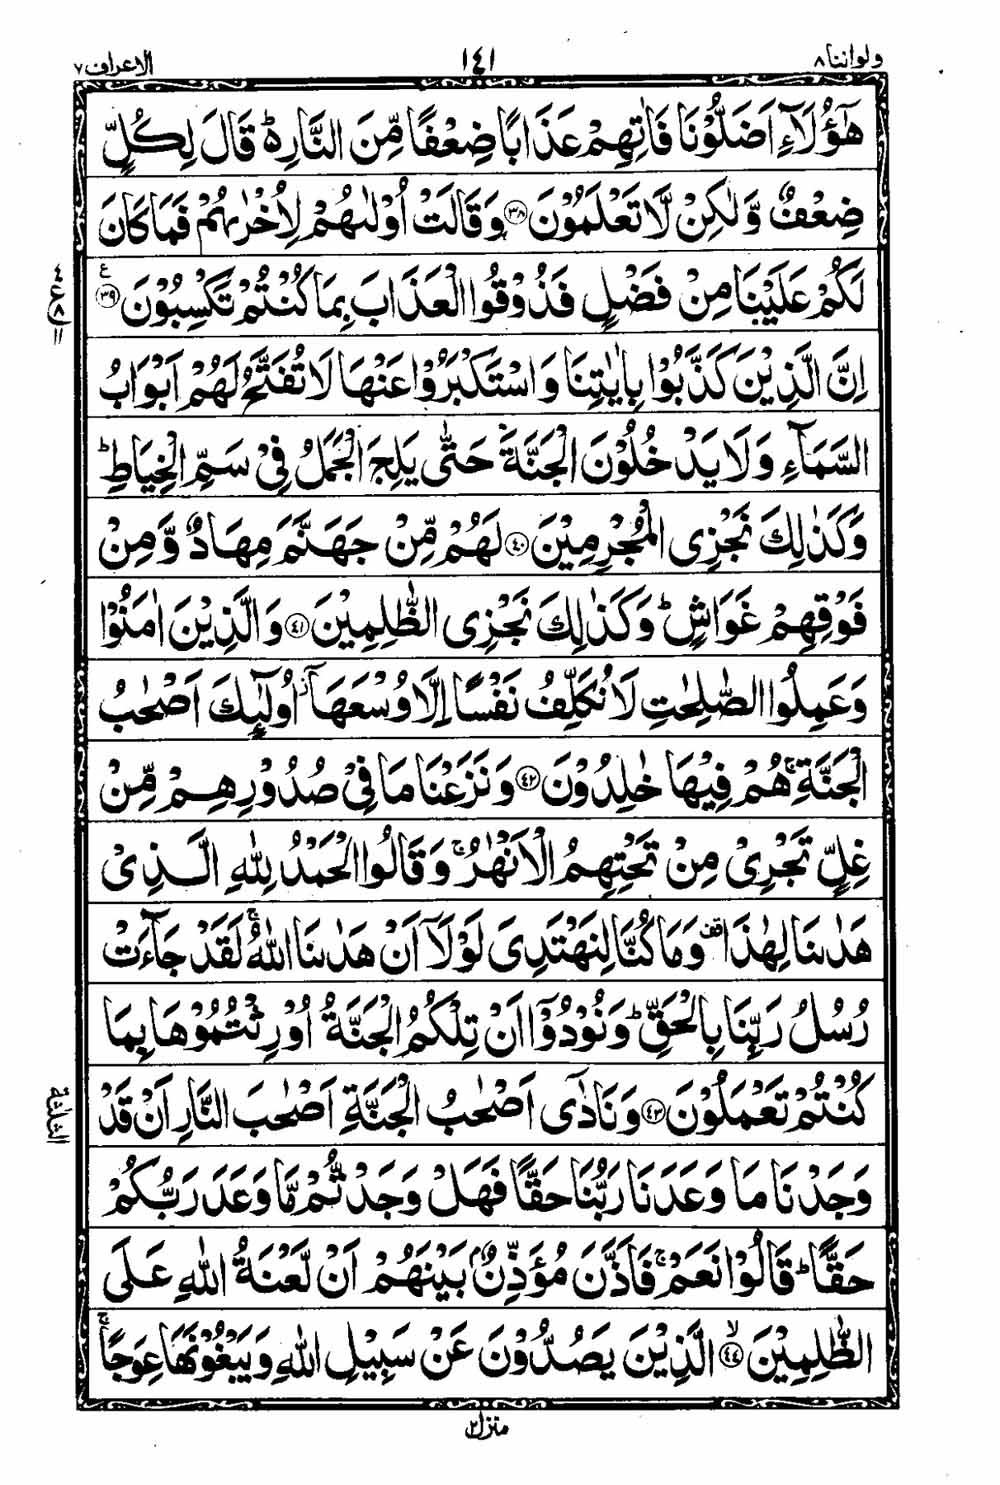 ولواننا ٨
١٤١
الاعراف ٧
هٰٓؤُلَآءِ اَضَلُّوْنَا فَاٰتِهِمْ عَذَابًا ضِعْفًا مِّنَ النَّارِ ۬ؕ قَالَ لِكُلٍّ
ضِعْفٌ وَّلٰكِنْ لَّا تَعْلَمُوْنَ ﴿۳۸﴾ وَقَالَتْ اُوْلٰىهُمْ لِاُخْرٰىهُمْ فَمَا كَانَ
لَكُمْ عَلَيْنَا مِنْ فَضْلٍ فَذُوْقُوا الْعَذَابَ بِمَا كُنْتُمْ تَكْسِبُوْنَ ﴿۳۹﴾ ع
٤
ع ٨
١١
اِنَّ الَّذِيْنَ كَذَّبُوْا بِاٰيٰتِنَا وَاسْتَكْبَرُوْا عَنْهَا لَا تُفَتَّحُ لَهُمْ اَبْوَابُ
السَّمَآءِ وَلَا يَدْخُلُوْنَ الْجَنَّةَ حَتّٰى يَلِجَ الْجَمَلُ فِيْ سَمِّ الْخِيَاطِ ؕ
وَكَذٰلِكَ نَجْزِى الْمُجْرِمِيْنَ ﴿۴۰﴾ لَهُمْ مِّنْ جَهَنَّمَ مِهَادٌ وَّمِنْ
فَوْقِهِمْ غَوَاشٍ ؕ وَكَذٰلِكَ نَجْزِى الظّٰلِمِيْنَ ﴿۴۱﴾ وَالَّذِيْنَ اٰمَنُوْا
وَعَمِلُوا الصّٰلِحٰتِ لَا نُكَلِّفُ نَفْسًا اِلَّا وُسْعَهَاۤ ؗ اُولٰٓئِكَ اَصْحٰبُ
الْجَنَّةِ ۚ هُمْ فِيْهَا خٰلِدُوْنَ ﴿۴۲﴾ وَنَزَعْنَا مَا فِيْ صُدُوْرِهِمْ مِّنْ
غِلٍّ تَجْرِيْ مِنْ تَحْتِهِمُ الْاَنْهٰرُ ۚ وَقَالُوا الْحَمْدُ لِلّٰهِ الَّذِيْ
هَدٰىنَا لِهٰذَا قف وَمَا كُنَّا لِنَهْتَدِىَ لَوْلَاۤ اَنْ هَدٰىنَا اللّٰهُ ۚ لَقَدْ جَآءَتْ
رُسُلُ رَبِّنَا بِالْحَقِّ ؕ وَنُوْدُوْۤا اَنْ تِلْكُمُ الْجَنَّةُ اُوْرِثْتُمُوْهَا بِمَا
كُنْتُمْ تَعْمَلُوْنَ ﴿۴۳﴾ وَنَادٰٓى اَصْحٰبُ الْجَنَّةِ اَصْحٰبَ النَّارِ اَنْ قَدْ
الثلثة
وَجَدْنَا مَا وَعَدَنَا رَبُّنَا حَقًّا فَهَلْ وَجَدْتُّمْ مَّا وَعَدَ رَبُّكُمْ
حَقًّا ؕ قَالُوْا نَعَمْ ۚ فَاَذَّنَ مُؤَذِّنٌۢ بَيْنَهُمْ اَنْ لَّعْنَةُ اللّٰهِ عَلَى
الظّٰلِمِيْنَ ۙ﴿۴۴﴾ الَّذِيْنَ يَصُدُّوْنَ عَنْ سَبِيْلِ اللّٰهِ وَيَبْغُوْنَهَا عِوَجًا ۚ
منزل ٢